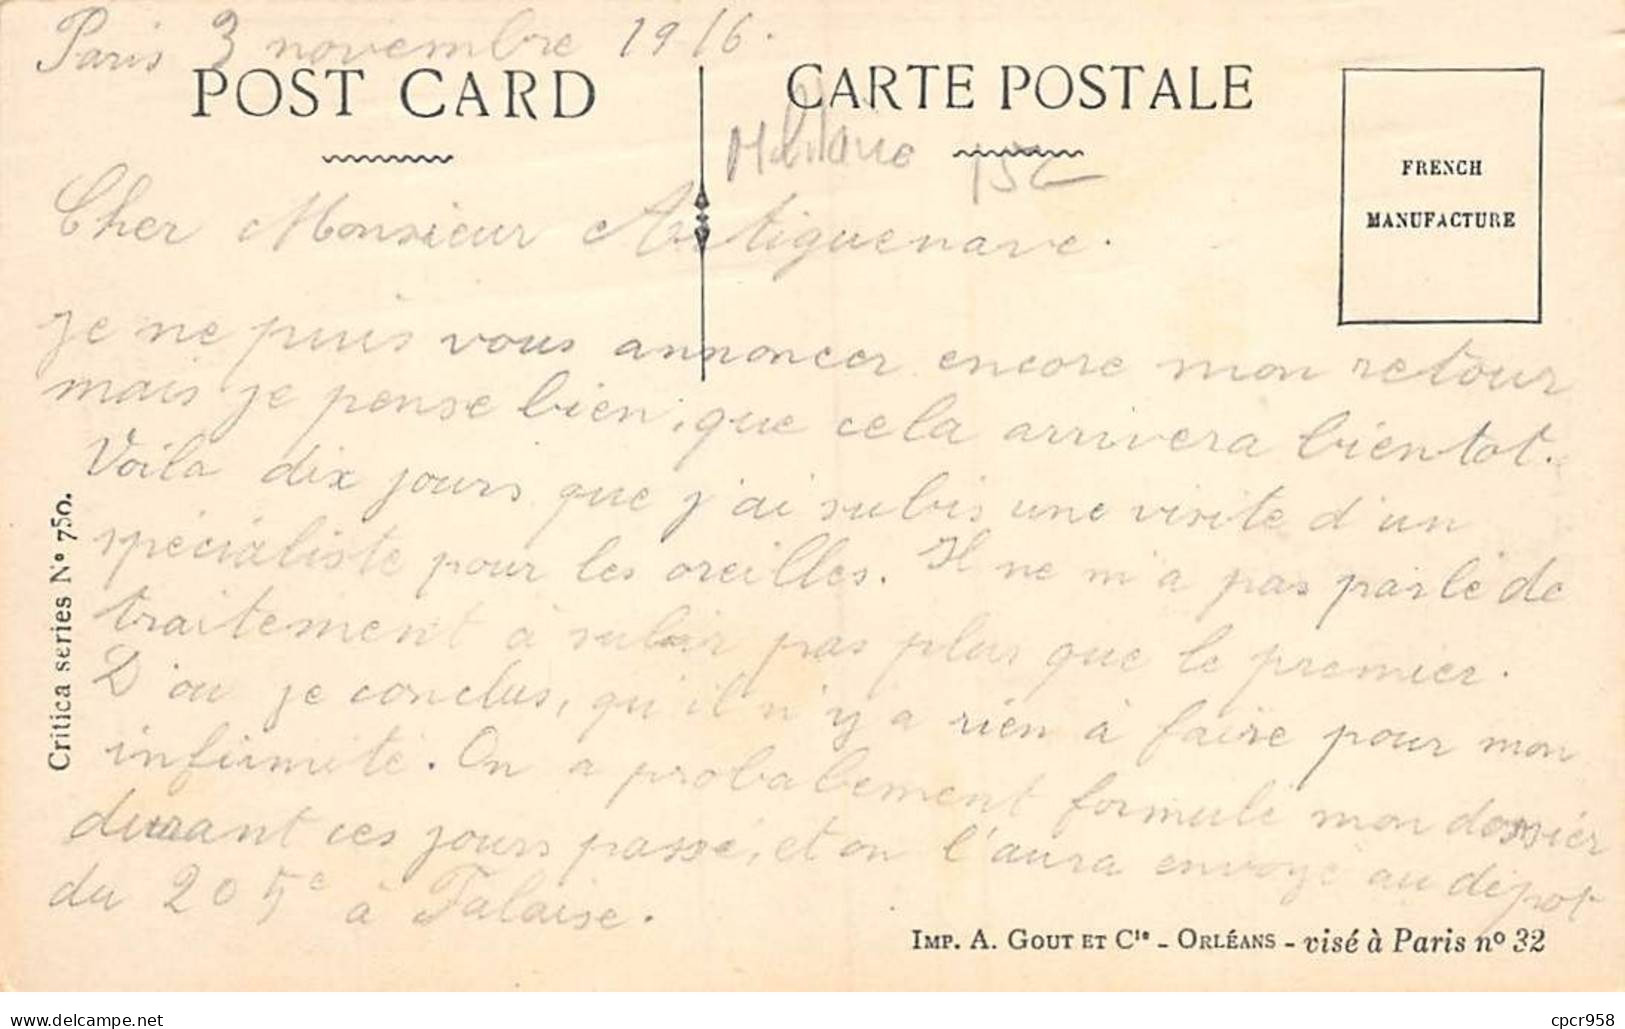 Paris 3 novembre 1916.
POST CARD
CARTE POSTALE
Militaire 15c
FRENCH
MANUFACTURE
Cher Monsieur Artiguenave.
je ne puis vous annoncer encore mon retour
mais je pense bien, que cela arrivera bientot.
Voila dix jours que j'ai subis une visite d'un
spécialiste pour les oreilles. Il ne m'a pas parlé de
traitement à subir pas plus que le premier.
D'ou je conclus, qu'il n'y a rien à faire pour mon
infirmité. On a probablement formulé mon dossier
durant ces jours passé, et on l'aura envoyé au dépot
du 205e à Falaise.
Critica series N° 750.
IMP. A. GOUT ET Cie - ORLÉANS - visé à Paris no 32
delcampe.net
cpcr958